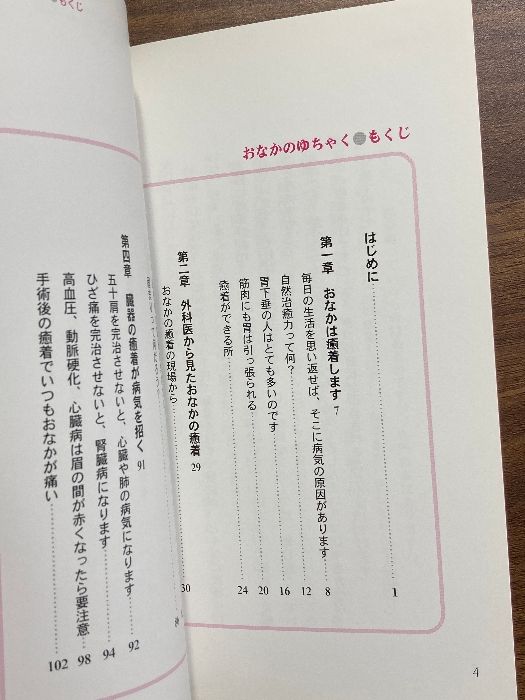 おなかのゆちゃく●もくじ
はじめに……1
第一章 おなかは癒着します 7
毎日の生活を思い返せば、そこに病気の原因があります……8
自然治癒力って何?……12
胃下垂の人はとても多いのです……16
筋肉にも胃は引っ張られる……20
癒着ができる所……24
第二章 外科医から見たおなかの癒着 29
おなかの癒着の現場から……30
4
●もくじ
第四章 臓器の癒着が病気を招く 91
五十肩を完治させないと、心臓や肺の病気になります……92
ひざ痛を完治させないと、腎臓病になります……94
高血圧、動脈硬化、心臓病は眉の間が赤くなったら要注意……98
手術後の癒着でいつもおなかが痛い……102